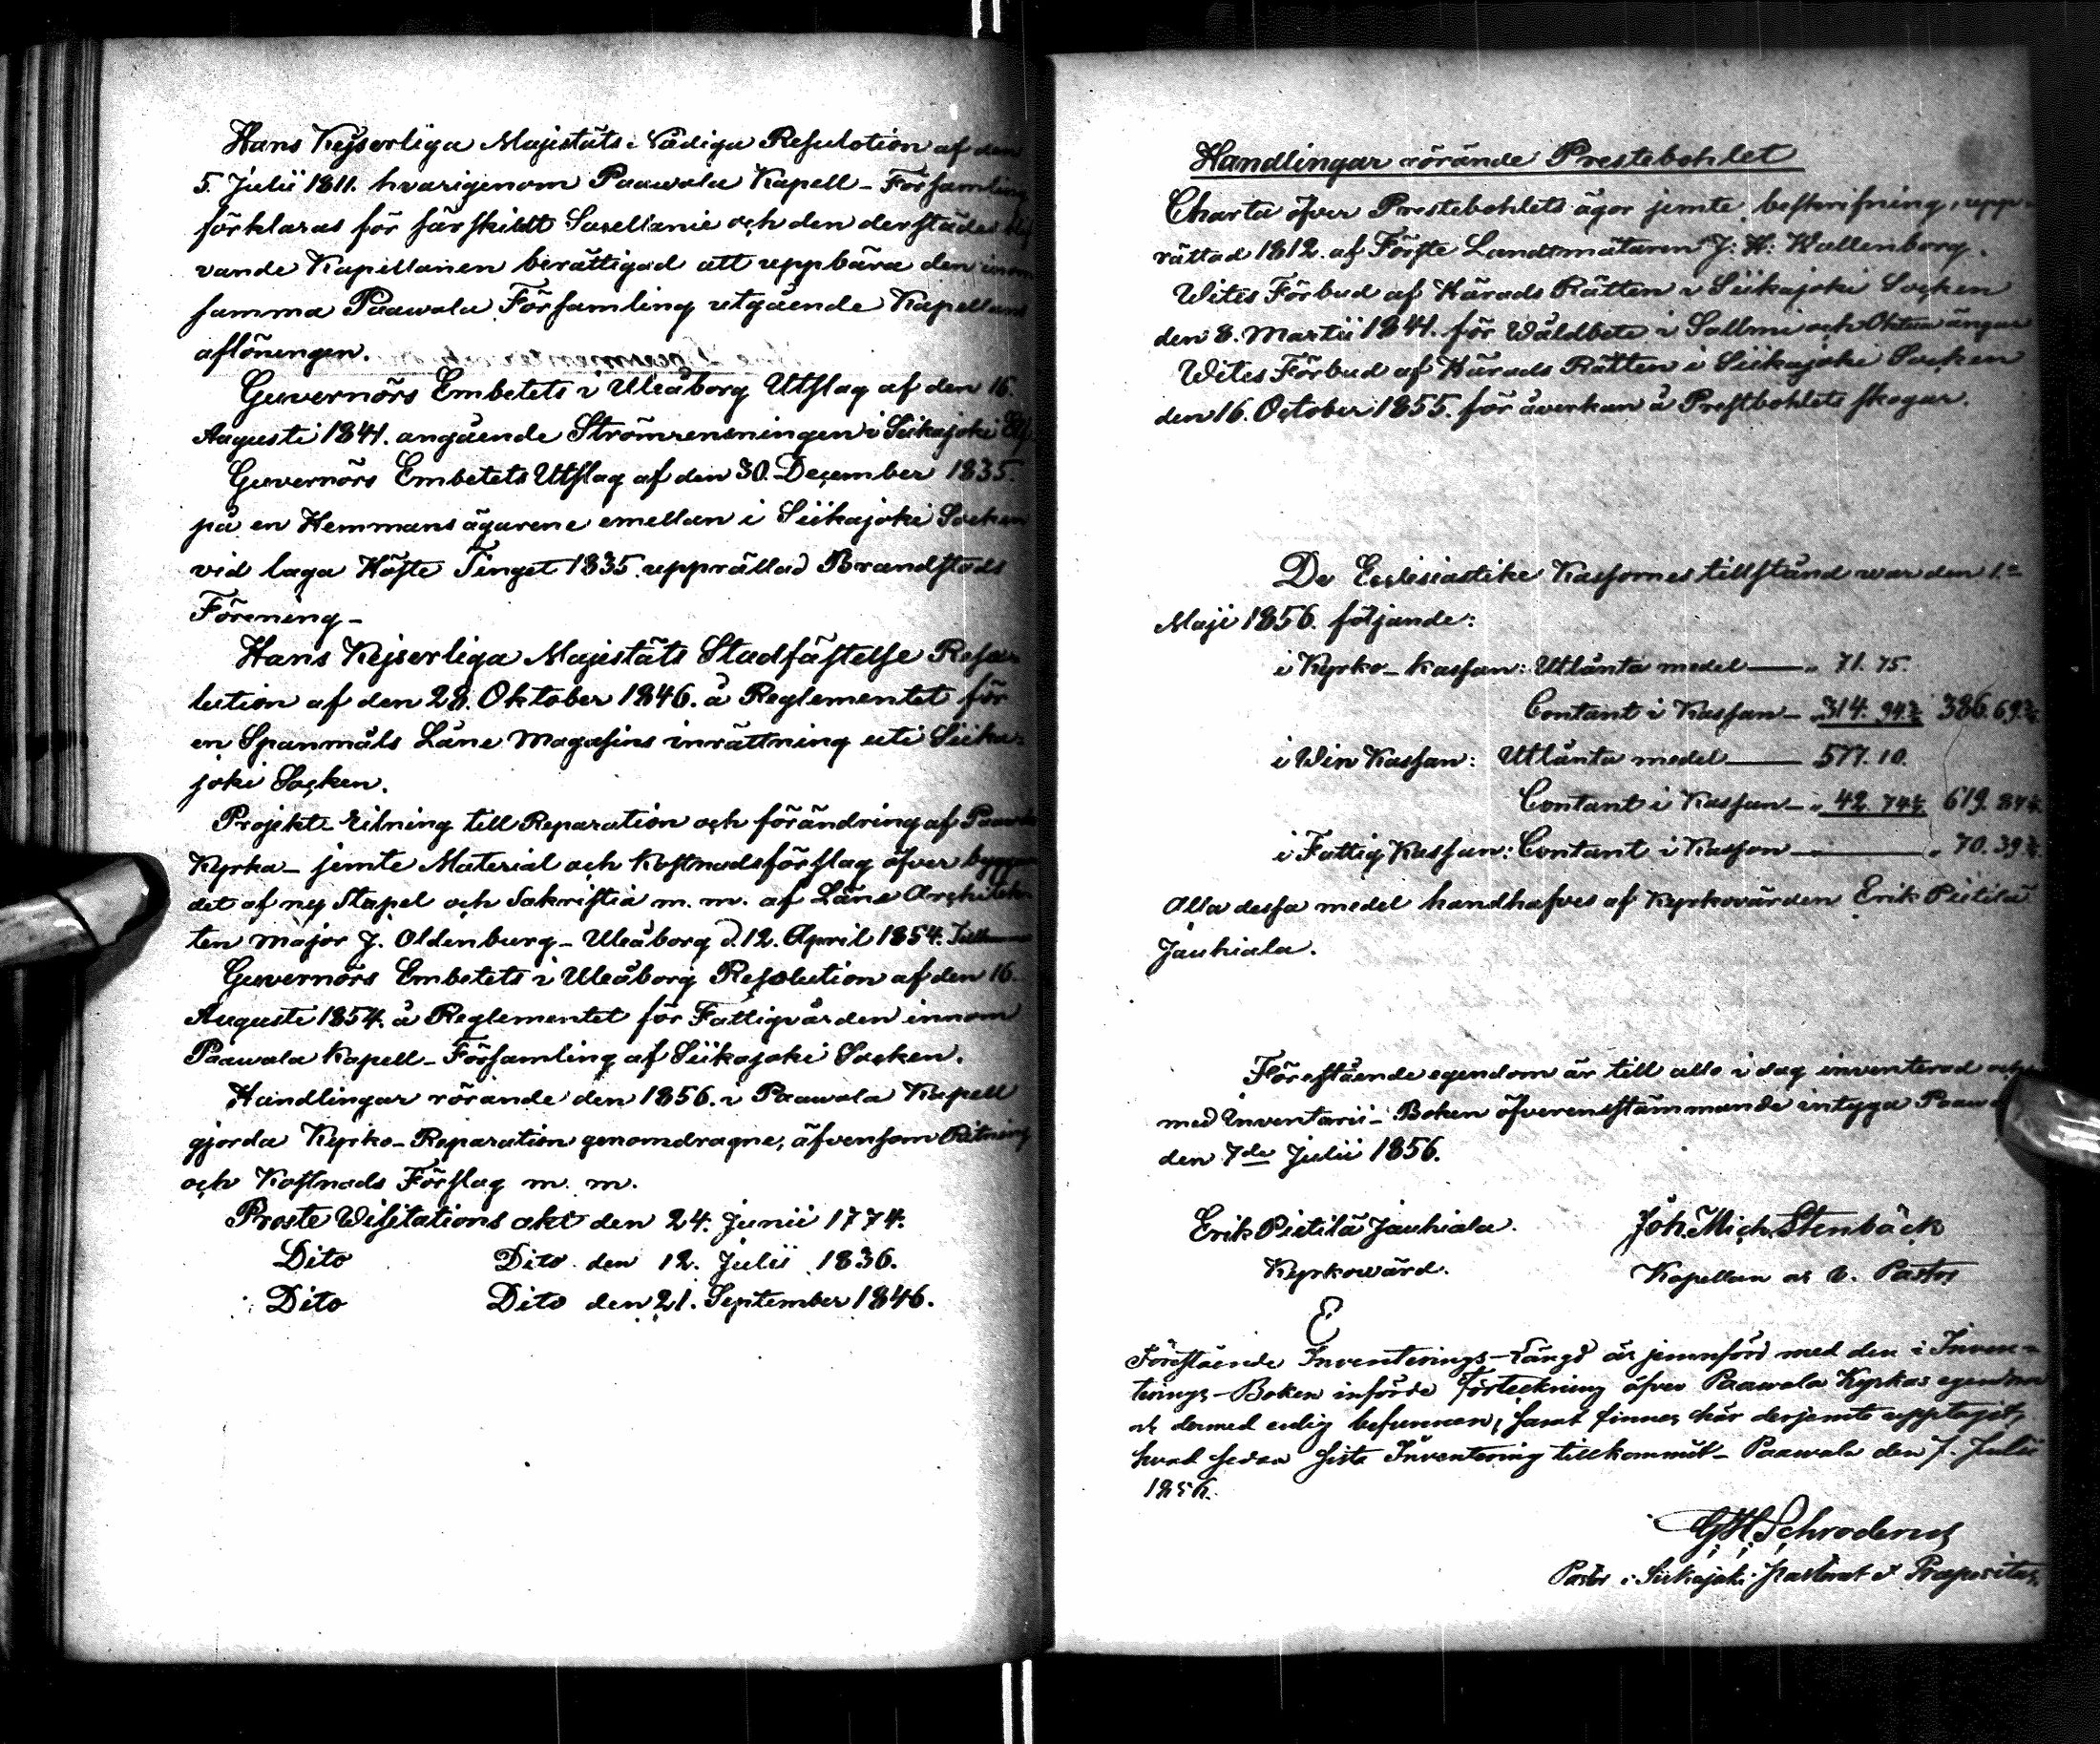 Hans Kejserliga Majestäts Nådiga Resulotion af den
5. Julii 1811. hvarigenom Paawola Kapell-Församling
förklaras för särskildt Sacellanie och den derstädes
vande Kapellanen berättigad att uppbära den inom
samma Paawola Församling utgående Kapellans
aflöningen.
Guvernörs Embetets i Uleåborg Utslag af den 16.
Augusti 1841. angående Strömrensningen i Siikajoki Elf
Guvernörs Embetets Utslag af den 30. December 1835.
på en Hemmansägarene emellan i Siikajoki Socken
vid laga Höste Tinget 1835. upprättad Brandstods
Förening-
Hans Kejserliga Majestäts Stadfästelse Reso-
lution af den 28. Oktober 1846. å Reglementet för
en Spanmåls Låne Magasins inrättning uti Siika-
joki Socken.
Projekts ritning till Reparation och förändring af Paawola
Kyrka- jemte Material och Kostnadsförslag öfver byggan
det af ny Stapel och Sakristia m. m. af Läns Architek
ten Major J. Oldenburg- Uleåborg d. 12. April 1854.
Guvernörs Embetets i Uleåborg Resolution af den 16.
Augusti 1854. å Reglementet för Fattigvården innom
Paawola Kapell-Församling af Siikajoki Socken.
Handlingar rörande den 1856. i Paawola Kapell
gjorda Kyrko-Reparation genomdragne, äfvensom Ritning
och Kostnads Förslag m. m.
Proste Wisitations akt den 24. Junii 1774.
Dito Dito den 12. Julii 1836.
Dito Dito den 21. September 1846.
Handlingar rörande Prestebohlet
Charta öfver Prestebohlets ägor jemte beskrifning, upp-
rättad 1812. af Förste Landtmätaren J. H. Wallenborg.
Wites Förbud af Härads Rätten i Siikajoki Socken
den 8. Martii 1841. för Wåldbete i Sallmi och ängar
Wites Förbud af Härads Rätten i Siikajoki Socken
den 16. October 1855. för åverkan å Prestbohlets skogar.
De Ecclesiastike Kassornes tillstånd war den 1.
Maji 1856. följande:
i Kyrko-kassan: Utlånta medel — " 71. 75.
Contant i Kassan- " 314. 94 386. 69
i Win Kassan: Utlånta medel — 577. 10.
Contant i Kassan- " 42. 74 619. 84
i Fattig Kassan: Contant i Kasson — " 70. 39
Alla dessa medel handhafves af Kyrkovärden Erik Pietilä
Jauhiala.
Förestående egendom är till alla i dag inventerad och
med Inventarii-Boken öfverensstämmande intyga Paawola
den 7de Julii 1856.
Erik Pietilä Jauhiala. Joh. Mich. Stenbäck
Kyrkowärd. Kapellan o. v. Pastor
E
Förestående Inventerings-Längd är jemnförd med den i Inven-
terings-Boken införde Förteckning öfver Paawola Kyrkas egendom
och dermed enlig befunnen, samt finnes här derjemte upptagit,
hvad sedan sista Inventering tillkommit- Paawola den 7. Julii
1856.
G H Schroderus
Pastor i Siikajoki Pastorat & Præpositus.